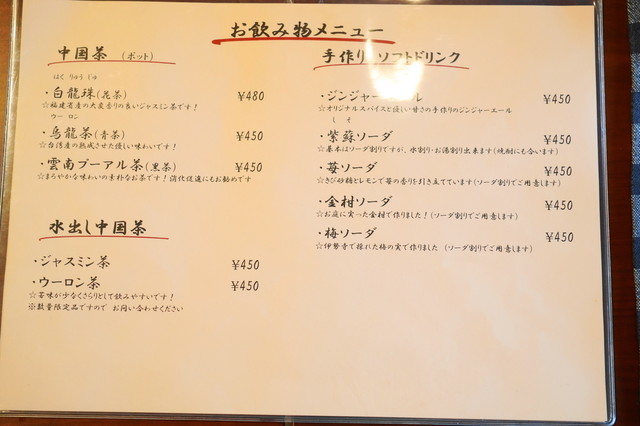 お飲み物メニュー
中国茶 (ポット)
はく りゅう じゅ
・白龍珠(花茶) ¥480
☆福建省産の大変香りの良いジャスミン茶です!
ウー ロン
・烏龍茶(青茶) ¥450
☆台湾産の熟成させた優しい味わいです!
・雲南プーアル茶(黒茶) ¥450
☆まろやかな味わいの素朴なお茶です! 消化促進にもお勧めです
水出し中国茶
・ジャスミン茶 ¥450
・ウーロン茶 ¥450
☆苦味が少なくさらりとして飲みやすいです!
※数量限定品ですので お問い合わせください
手作り ソフトドリンク
・ジンジャーエール ¥450
☆オリジナルスパイスと優しい甘さの手作りのジンジャーエール
し そ
・紫蘇ソーダ ¥450
☆基本はソーダ割りですが、水割り・お湯割り出来ます(焼酎にも合います)
・苺ソーダ ¥450
☆きび砂糖とレモンで苺の香りを引き立てています(ソーダ割りでご用意します)
・金柑ソーダ ¥450
☆お庭に実った金柑で作りました!(ソーダ割りでご用意します)
・梅ソーダ ¥450
☆伊勢寺で採れた梅の実で作りました (ソーダ割りでご用意します)